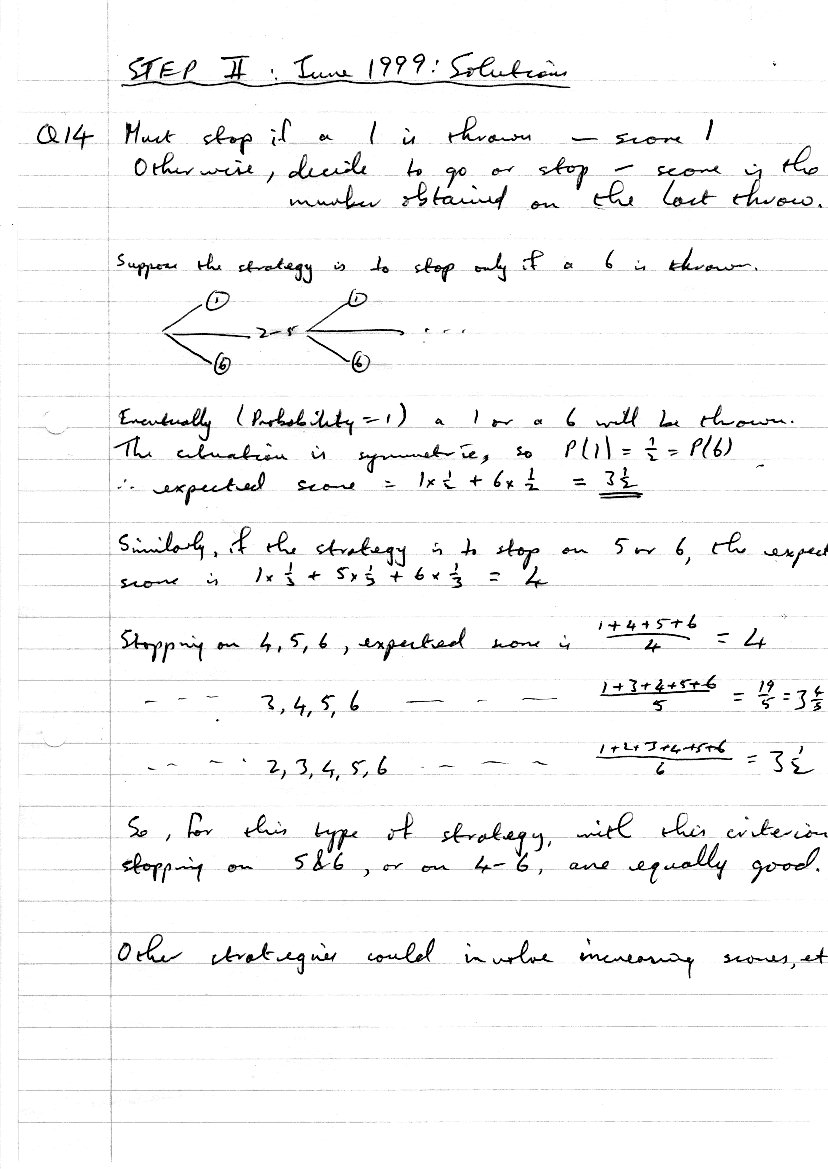 STEP II : June 1999: Solutions
Q14 Must stop if a 1 is thrown — score 1
Otherwise, decide to go or stop – score is the
number obtained on the last throw.
Suppose the strategy is to stop only if a 6 is thrown.
1 1
2-5 ...
6 6
Eventually (Probability = 1) a 1 or a 6 will be thrown.
The situation is symmetric, so P(1) = 1/2 = P(6)
∴ expected score = 1×1/2 + 6×1/2 = 3 1/2
Similarly, if the strategy is to stop on 5 or 6, the expect
score is 1×1/3 + 5×1/3 + 6×1/3 = 4
Stopping on 4, 5, 6, expected score is (1+4+5+6)/4 = 4
- - - 3, 4, 5, 6 — - — (1+3+4+5+6)/5 = 19/5 = 3 4/5
- - - 2, 3, 4, 5, 6 - — — - (1+2+3+4+5+6)/6 = 3 1/2
So, for this type of strategy, with this criterion
stopping on 5&6, or on 4-6, are equally good.
Other strategies could involve increasing scores, et